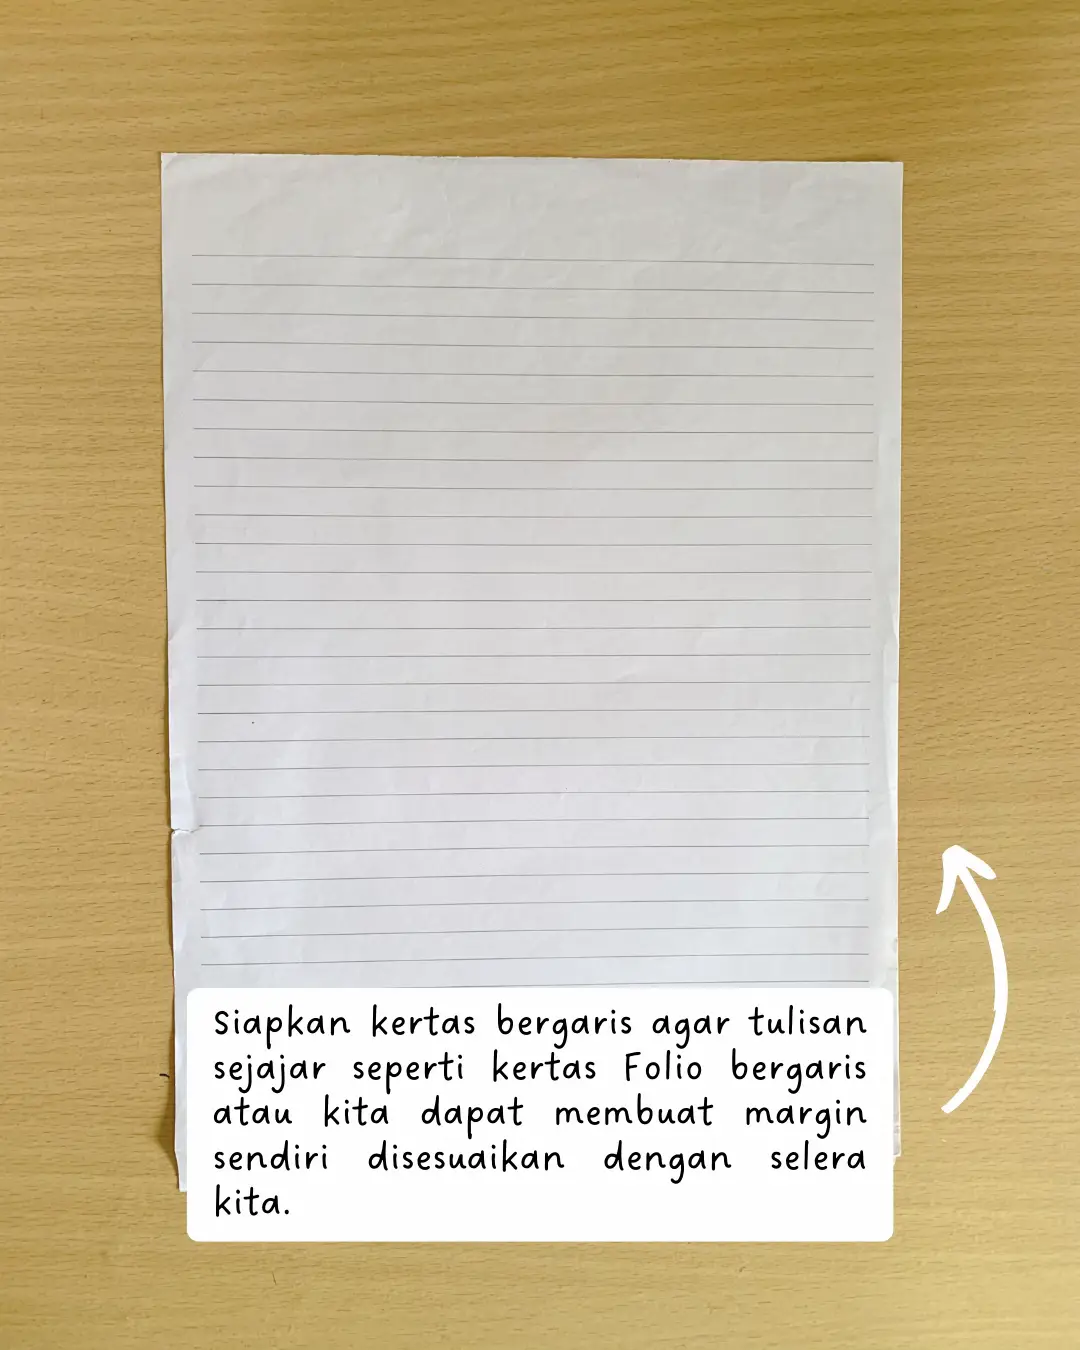 Siapkan kertas bergaris agar tulisan
sejajar seperti kertas Folio bergaris
atau kita dapat membuat margin
sendiri disesuaikan dengan selera
kita.